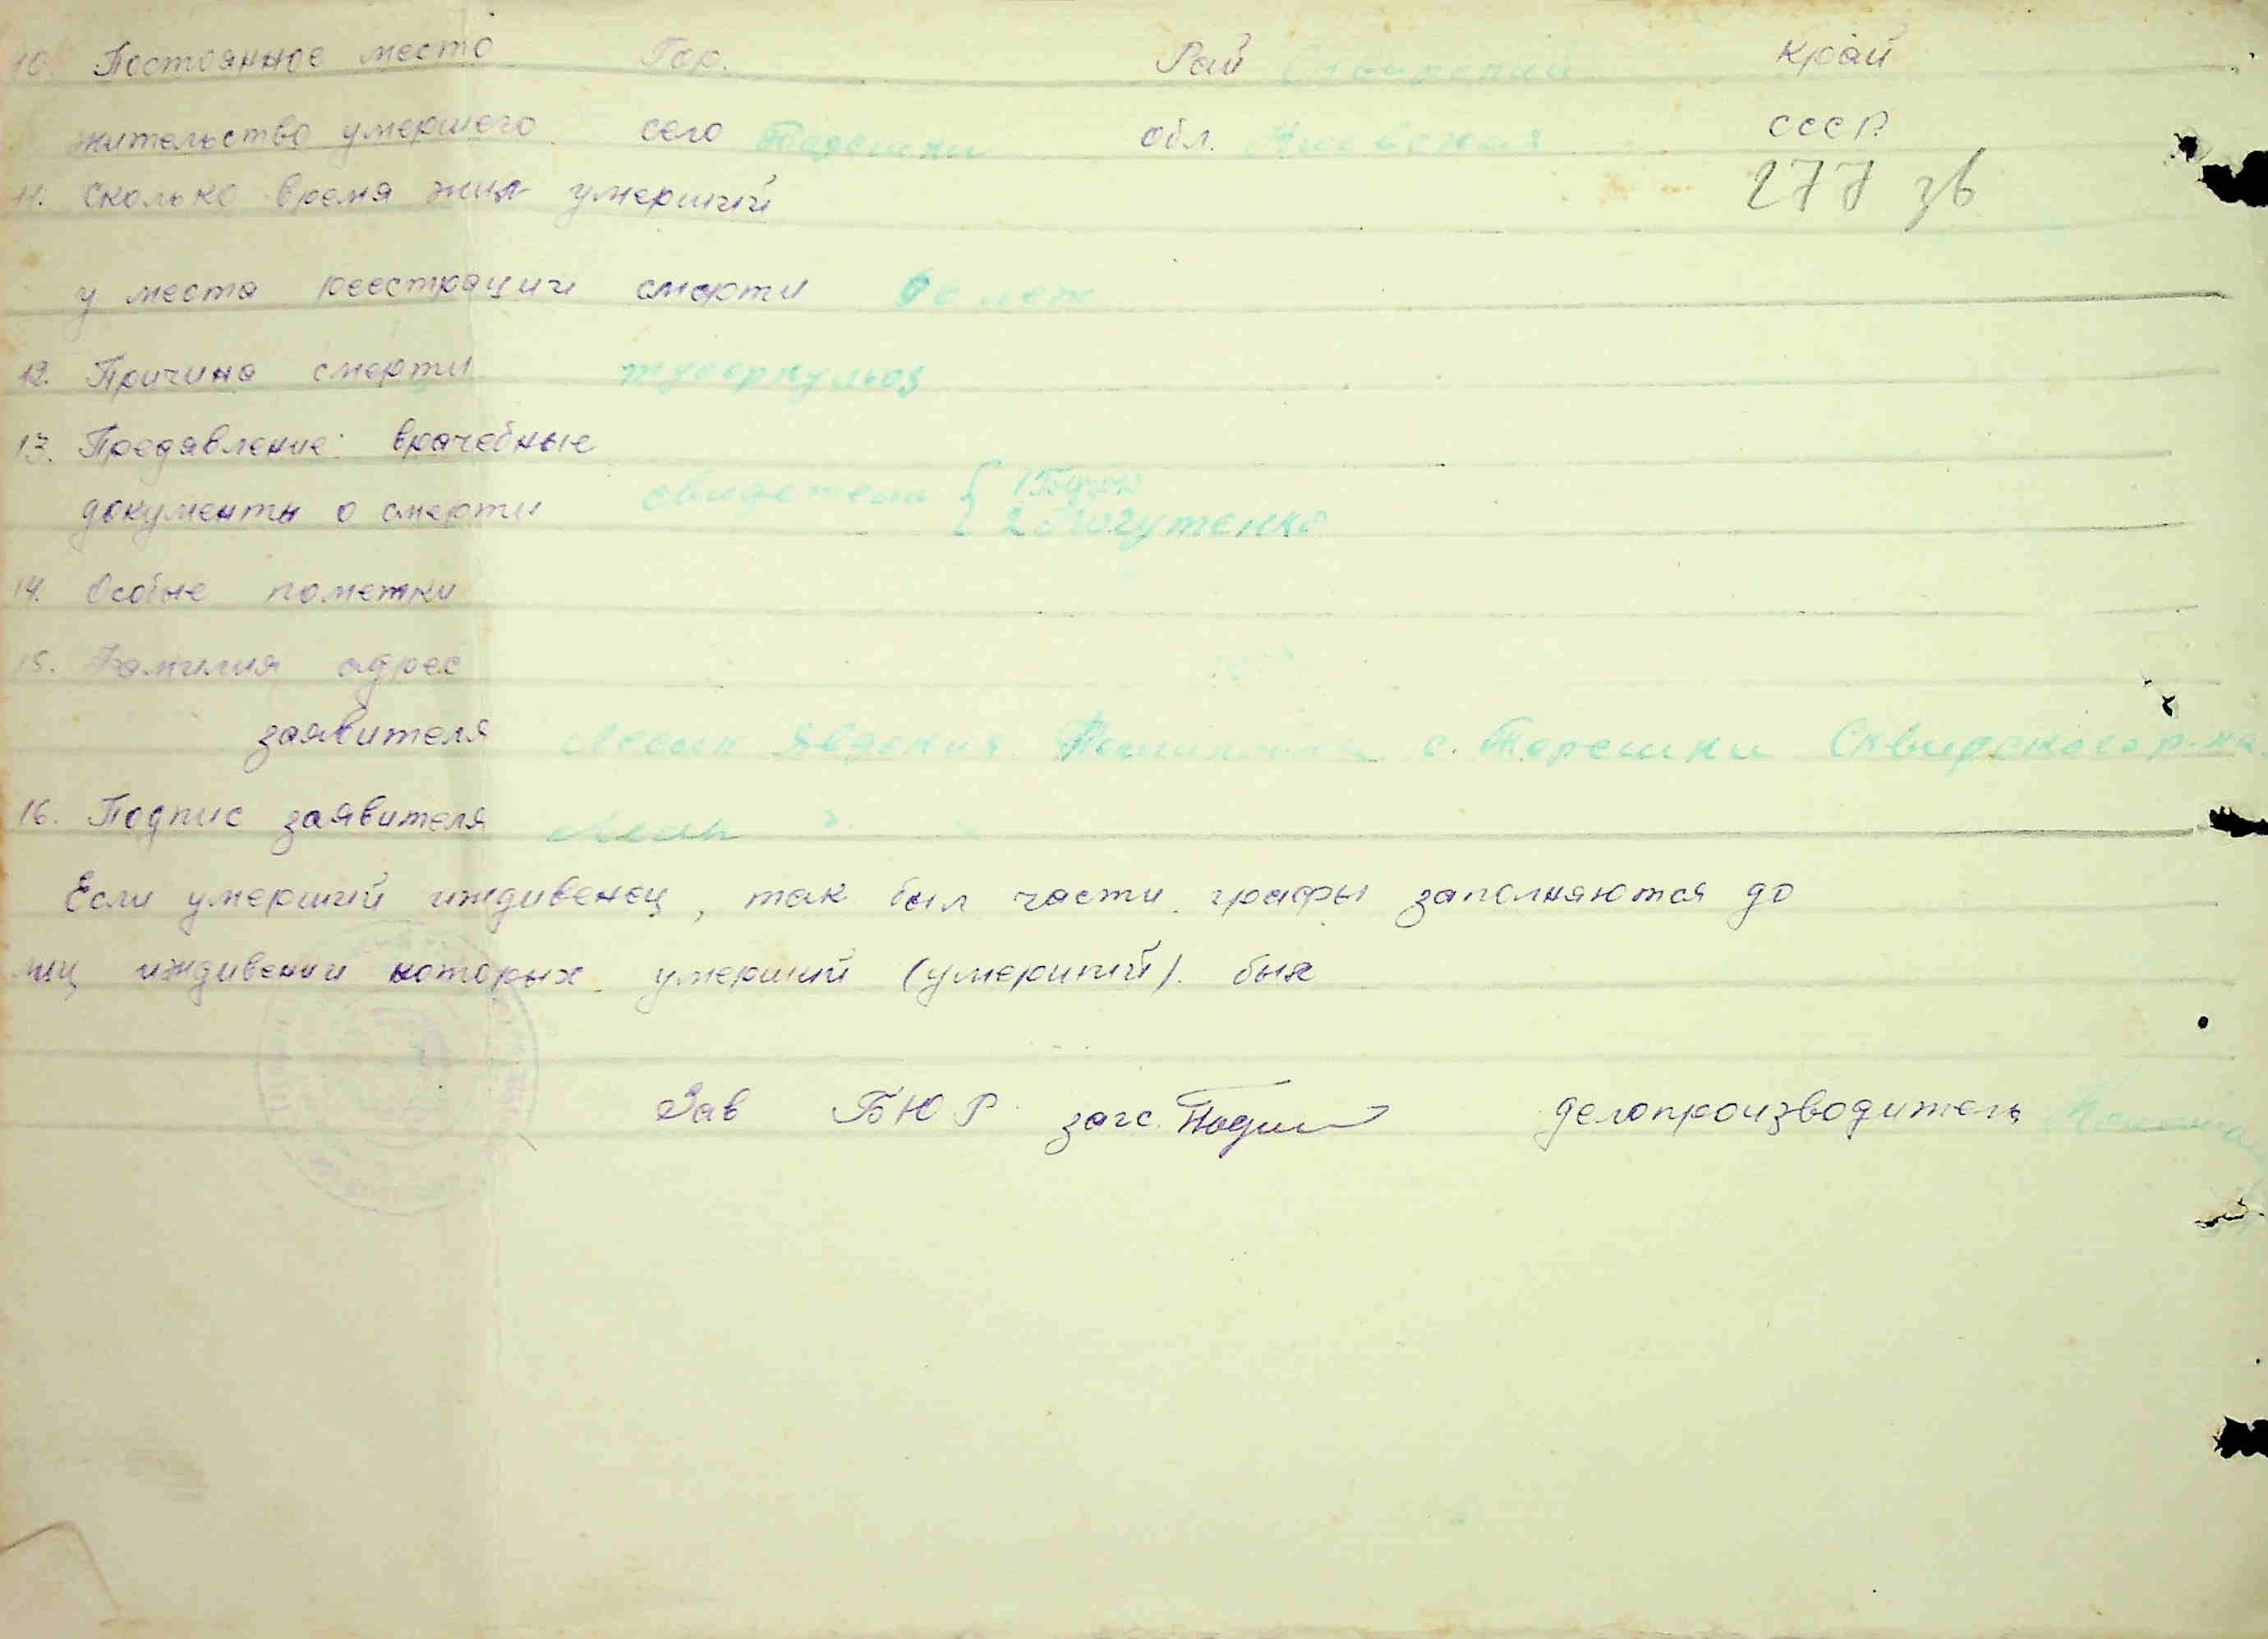 10. Постоянное место Гор. Рай Сквирский край
жительство умершего село Терешки обл. Киевская СССР.
277 зв
11. Сколько время жил умерший
у места реестрации смерти лет
12. Причина смерти туберкульоз
13. Предявление: врачебные
документы о смерти свидетели { 1
2 Могутенко
14. Особые пометки
15. Фамилия адрес
заявителя Явдокия с. Терешки Сквирского р-на
16. Подпис заявителя
Если умерший иждивенец, так был части графы заполняются до
лиц иждивении которых умерший (умерший). был
Зав БЮР загс. делопроизводитель